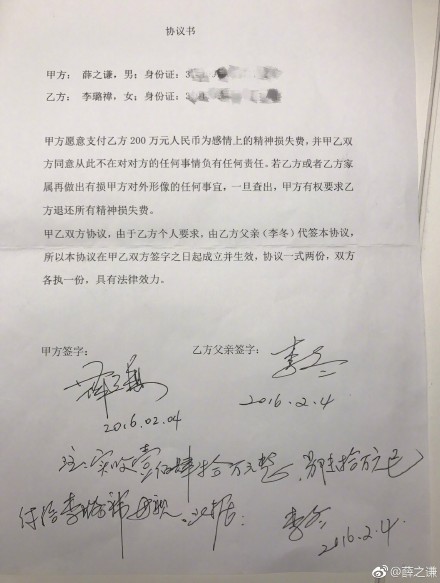 协议书
甲方：薛之谦，男；身份证：3
乙方：李璐禕，女；身份证：3
甲方愿意支付乙方 200 万元人民币为感情上的精神损失费，并甲乙双
方同意从此不在对对方的任何事情负有任何责任。若乙方或者乙方家
属再做出有损甲方对外形像的任何事宜，一旦查出，甲方有权要求乙
方退还所有精神损失费。
甲乙双方协议，由于乙方个人要求，由乙方父亲（李冬）代签本协议，
所以本协议在甲乙双方签字之日起成立并生效，协议一式两份，双方
各执一份，具有法律效力。
甲方签字： 乙方父亲签字：
薛之谦 李冬
2016.02.04 2016.2.4
注：实收壹佰肆拾万元整，另陆拾万元已
付给李璐禕母亲。
李冬
2016.2.4
@薛之谦